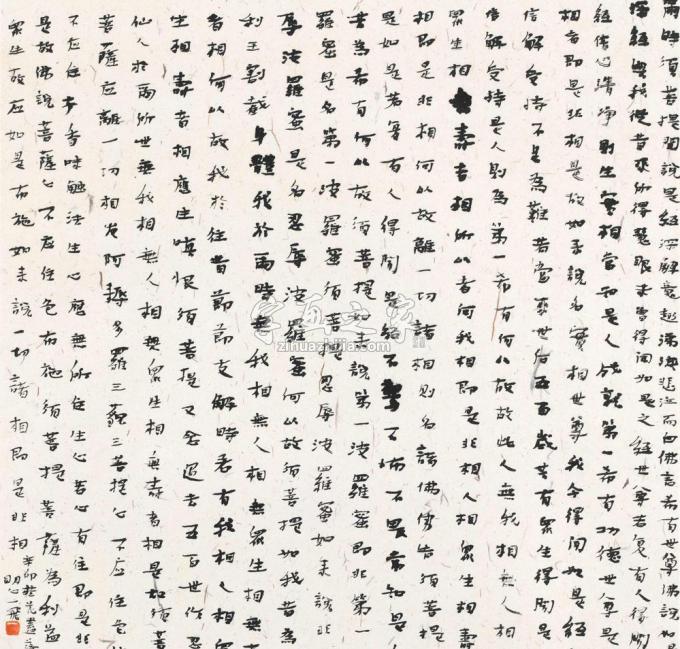 爾時須菩提聞說是經深解義趣涕淚悲泣而白佛言希有世尊佛說如是
深經典我從昔來所得慧眼未曾得聞如是之經世尊若復有人得聞
經信心清淨則生實相當知是人成就第一希有功德世尊是
相者即是非相是故如來說名實相世尊我今得聞如是經
信解受持不足為難若當來世後五百歲其有眾生得聞是
信解受持是人則為第一希有何以故故此人無我相無人相
眾生相無壽者相所以者何我相即是非相人相眾生相壽
相即是非相何以故離一切諸相則名諸佛佛告須菩提
是如是若復有人得聞是經不驚不怖不畏當知是人
甚為希有何以故須菩提如來說第一波羅蜜即非第一
羅蜜是名第一波羅蜜須菩提忍辱波羅蜜如來說非
辱波羅蜜是名忍辱波羅蜜何以故須菩提如我昔為
利王割截身體我於爾時無我相無人相無眾生相無
者相何以故我於往昔節節支解時若有我相人相眾
生相壽者相應生嗔恨須菩提又念過去五百世作忍
仙人於爾所世無我相無人相無眾生相無壽者相是故須菩
菩薩應離一切相發阿耨多羅三藐三菩提心不應住色
不應住聲香味觸法生心應無所住生心若心有住即是非
是故佛說菩薩心不應住色布施須菩提菩薩為利益
眾生故應如是布施如來說一切諸相即是非相
辛卯
字画之家
zihuazhijia.com